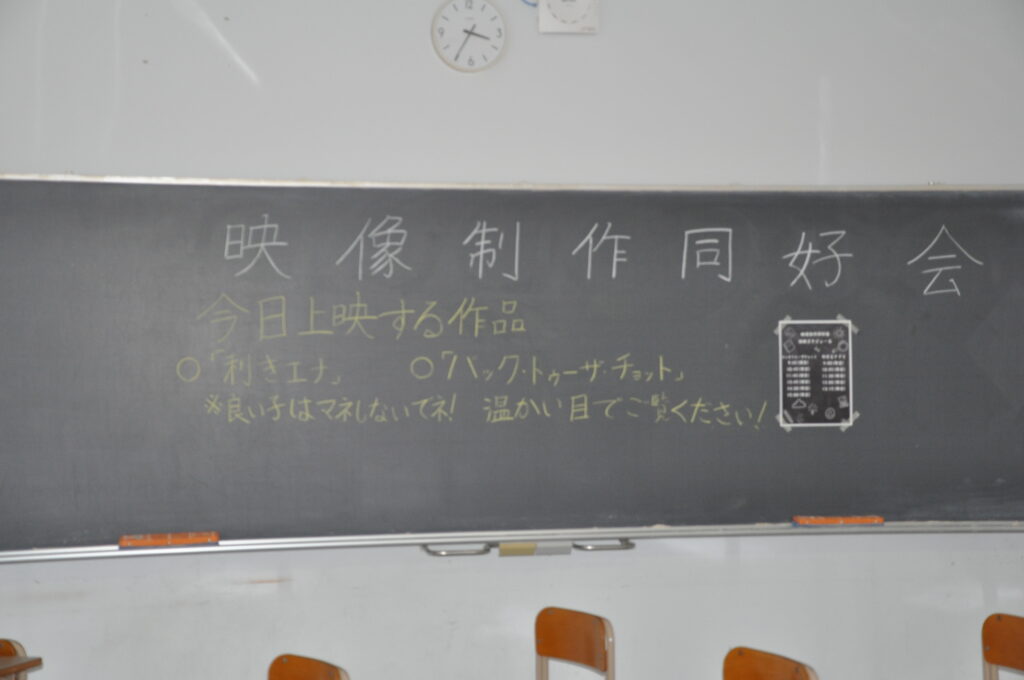 映像制作同好会
今日上映する作品
○「利きエナ」 ○「バック・トゥーザ・チョット」
※良い子はマネしないでネ! 温かい目でご覧ください!